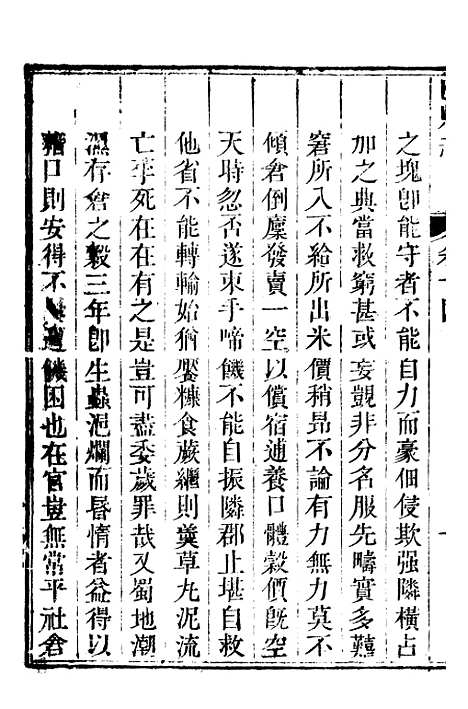 之塊卽能守者不能自力而豪佃侵欺强隣橫占
加之典當救窮甚或妄覬非分名服先疇實多難
窘所入不給所出米價稍昻不論有力無力莫不
傾倉倒廩發賣一空以償宿逋養口體穀價旣空
天時忽否遂束手啼饑不能自振隣郡止堪自救
他省不能轉輸始猶饜糠食蕨繼則羹草丸泥流
亡孚死在在有之是豈可盡委歲罪哉又蜀地潮
濕存倉之穀三年卽生蟲浥爛而昬惰者益得以
藉口則安得不遭饑困也在官豈無常平社倉